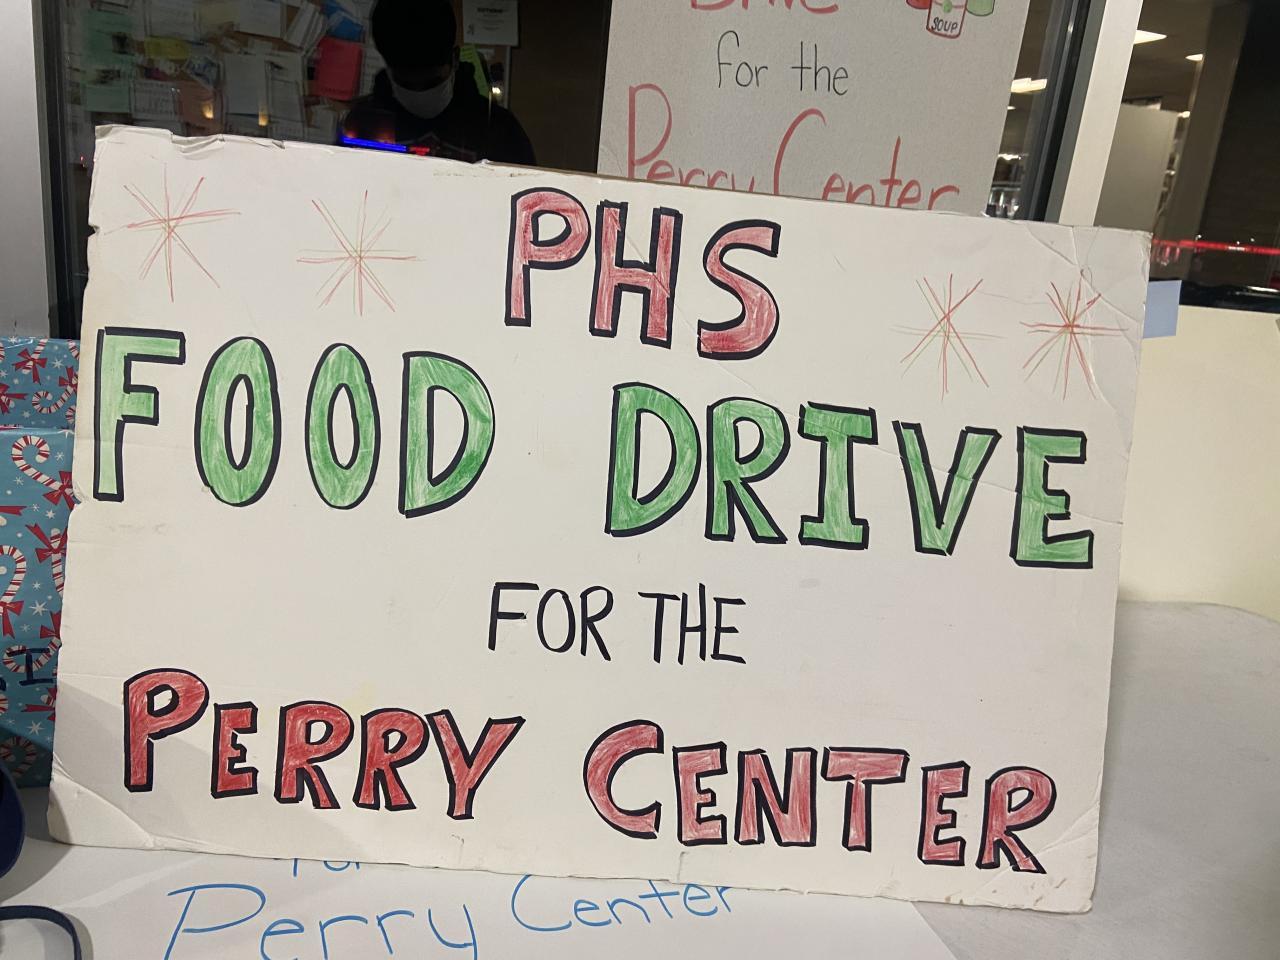 SOUP
for the
Perry Center
PHS
FOOD DRIVE
FOR THE
PERRY CENTER
Perry Center